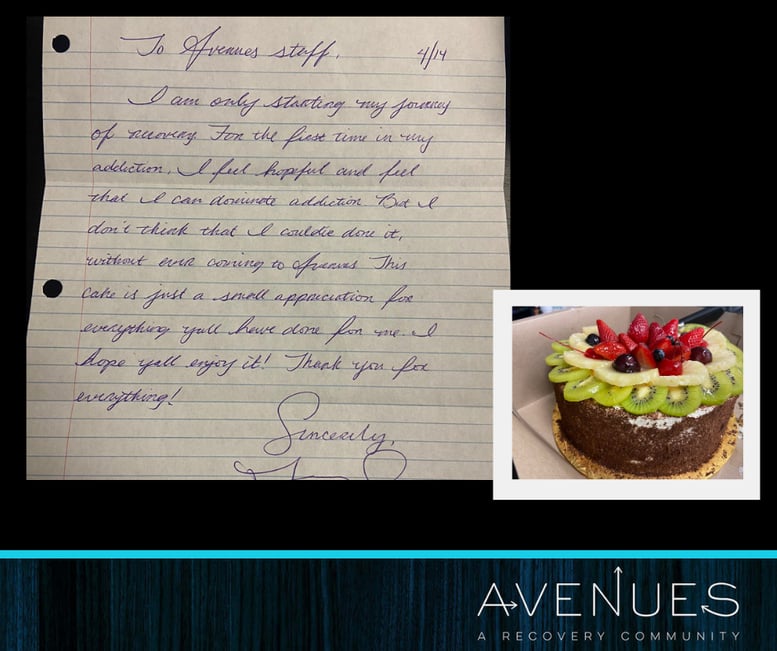 To Avenues staff, 4/14
I am only starting my journey
of recovery. For the first time in my
addiction, I feel hopeful and feel
that I can dominate addiction. But I
don't think that I could've done it,
without ever coming to Avenues. This
cake is just a small appreciation for
everything yall have done for me. I
hope yall enjoy it! Thank you for
everything!
Sincerely,
AVENUES
A RECOVERY COMMUNITY